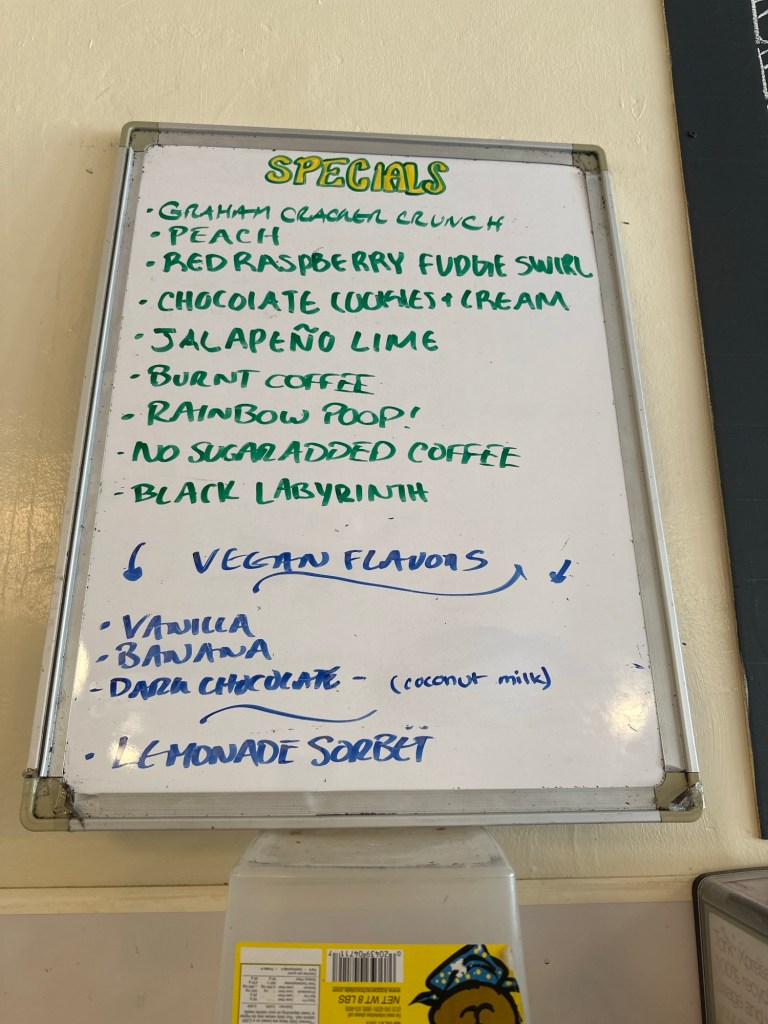 SPECIALS
• GRAHAM CRACKER CRUNCH
• PEACH
• RED RASPBERRY FUDGE SWIRL
• CHOCOLATE COOKIES + CREAM
• JALAPEÑO LIME
• BURNT COFFEE
• RAINBOW POOP!
• NO SUGAR ADDED COFFEE
• BLACK LABYRINTH
VEGAN FLAVORS
• VANILLA
• BANANA
- DARK CHOCOLATE - (coconut milk)
• LEMONADE SORBET
NET WT 8 LBS